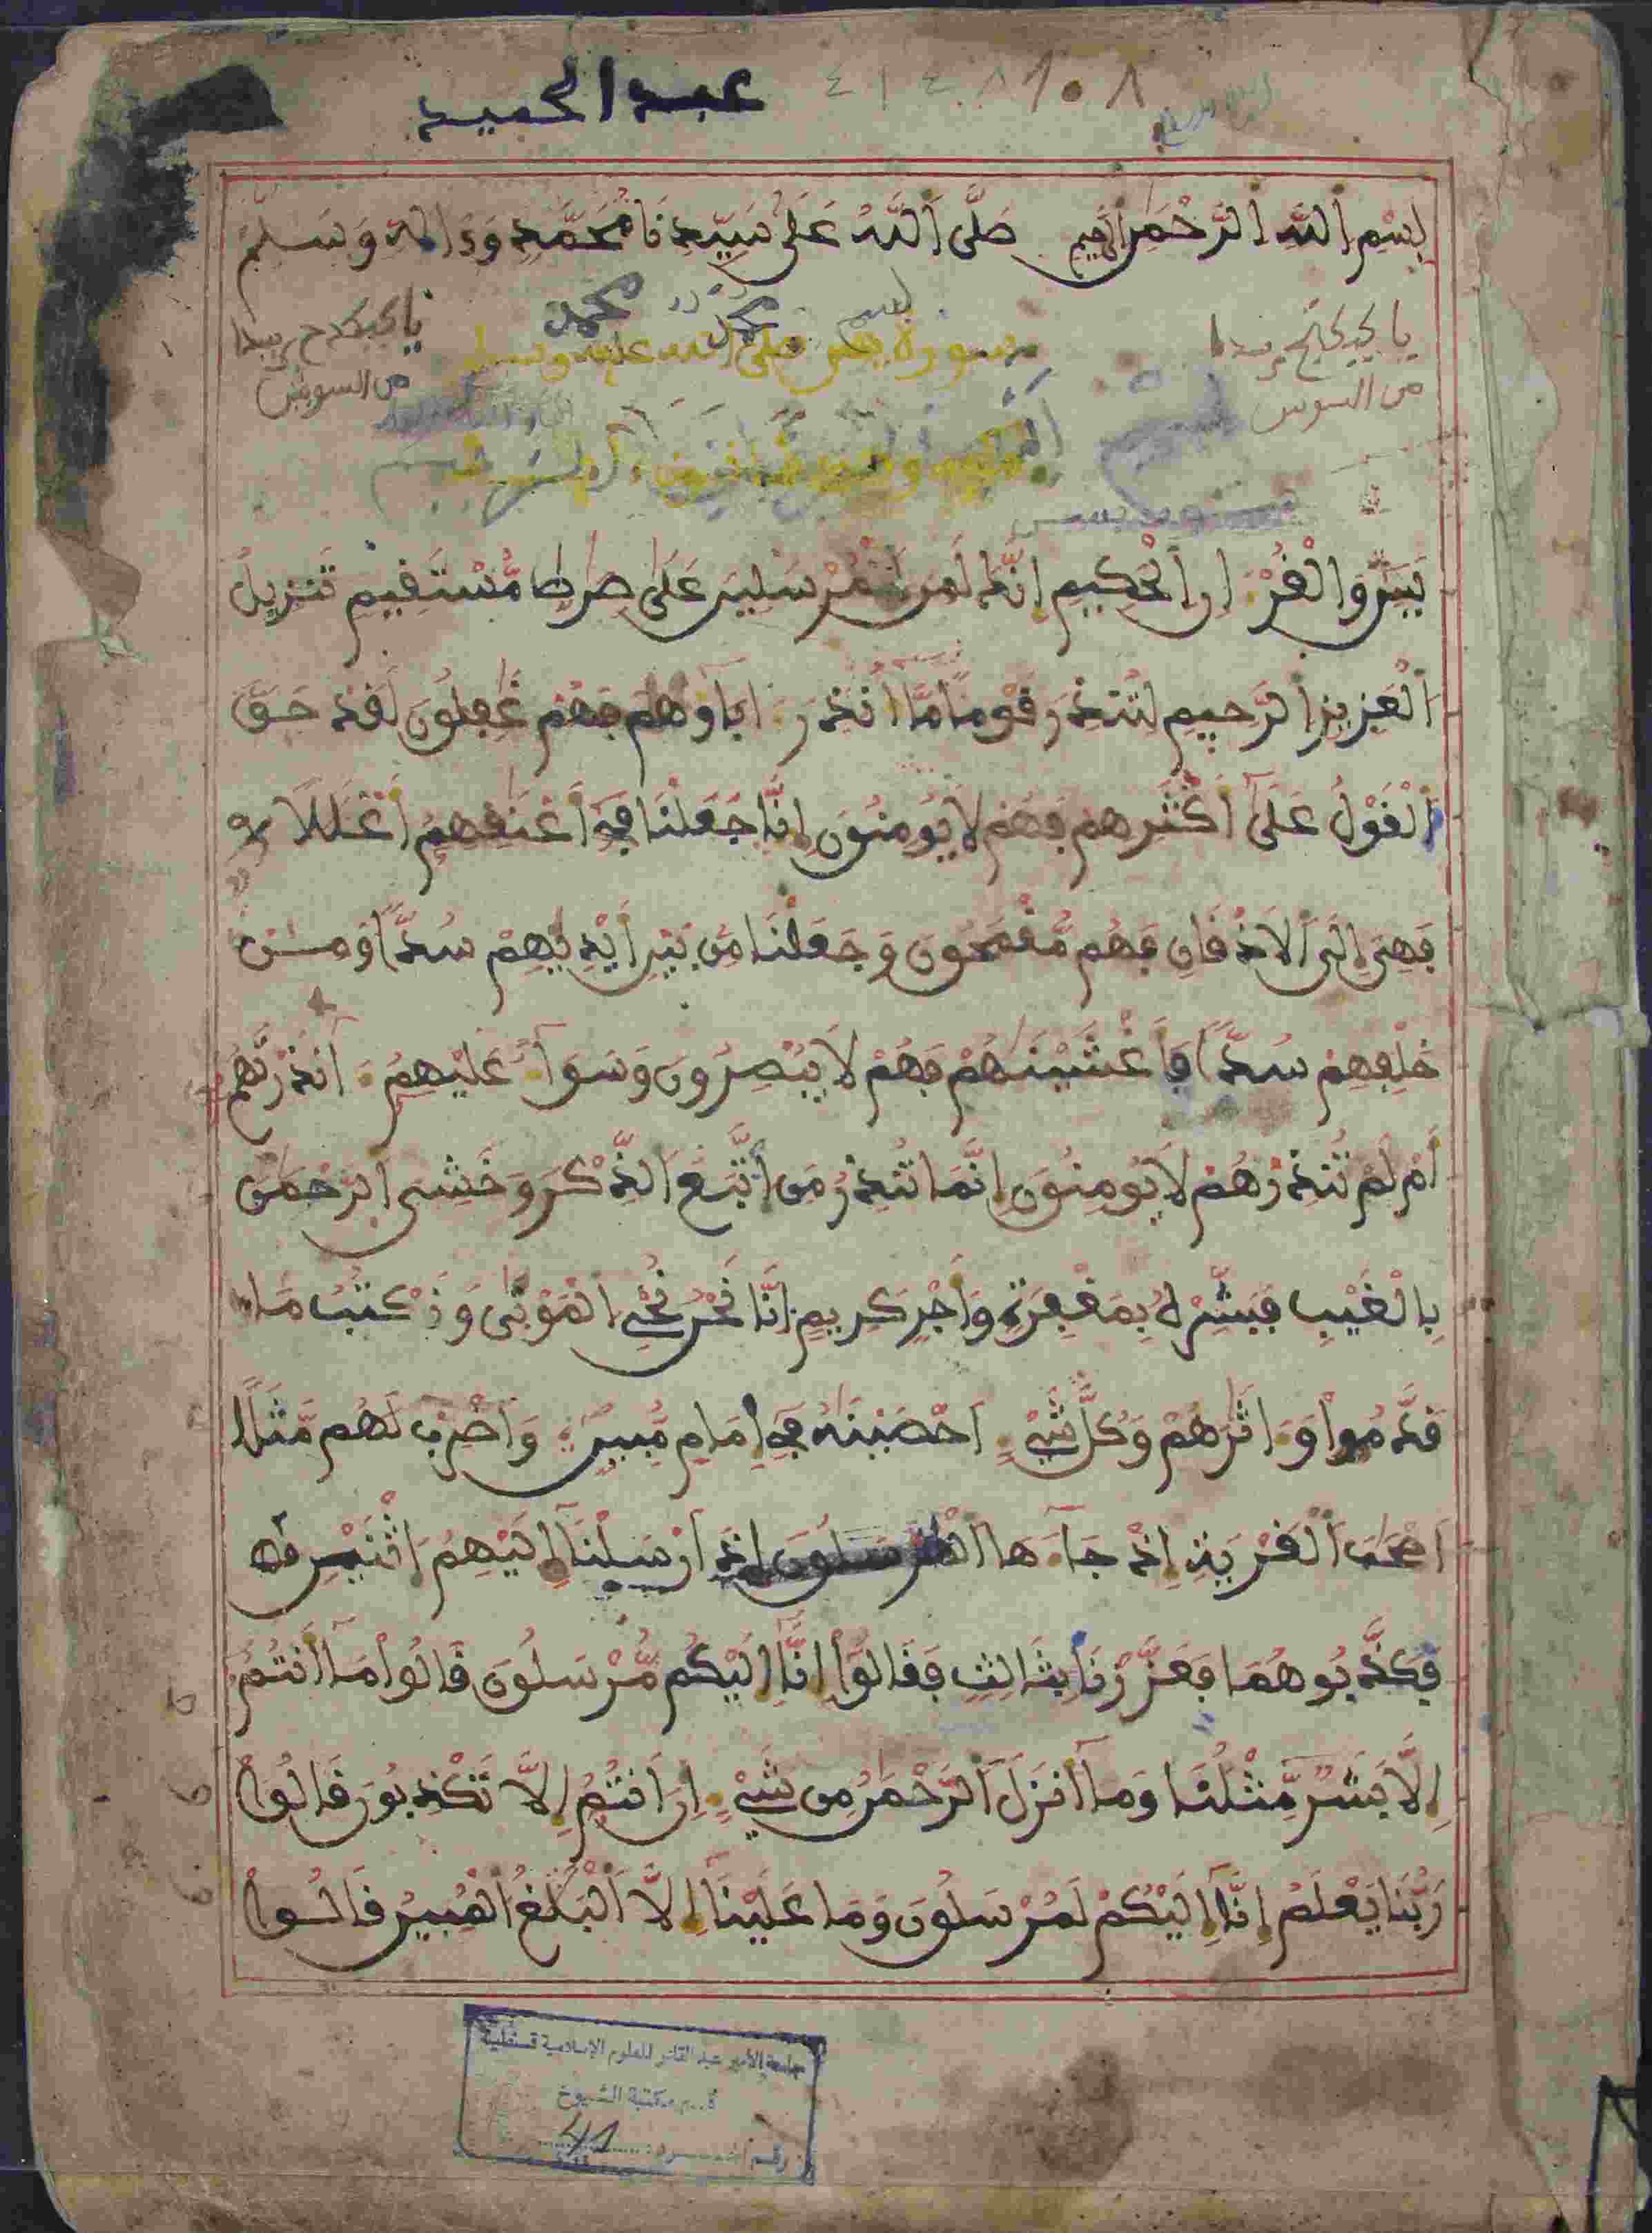 عبد الحميد
٤١٤٨٩٠٨
بِسْمِ اللَّهِ الرَّحْمَٰنِ الرَّحِيمِ صَلَّى اللَّهُ عَلَى سَيِّدِنَا مُحَمَّدٍ وَءَالِهِ وَسَلِّمْ
محمد
يا كيكتج
من السوس
من السوس
سورة يس صلى الله عليه وسلم
يَسِٓ وَالْقُرْءَانِ الْحَكِيمِ إِنَّكَ لَمِنَ الْمُرْسَلِينَ عَلَىٰ صِرَٰطٍ مُّسْتَقِيمٍ تَنزِيلُ
الْعَزِيزِ الرَّحِيمِ لِتُنذِرَ قَوْمًا مَّا أُنذِرَ ءَابَاؤُهُمْ فَهُمْ غَٰفِلُونَ لَقَدْ حَقَّ
الْقَوْلُ عَلَىٰ أَكْثَرِهِمْ فَهُمْ لَا يُومِنُونَ إِنَّا جَعَلْنَا فِي أَعْنَٰقِهِمْ أَغْلَٰلًا
فَهِيَ إِلَى الْأَذْقَانِ فَهُم مُّقْمَحُونَ وَجَعَلْنَا مِنۢ بَيْنِ أَيْدِيهِمْ سُدًّا وَمِنْ
خَلْفِهِمْ سُدًّا فَأَغْشَيْنَٰهُمْ فَهُمْ لَا يُبْصِرُونَ وَسَوَآءٌ عَلَيْهِمُ ءَآنذَرْتَهُمُ
أَمْ لَمْ تُنذِرْهُمْ لَا يُومِنُونَ إِنَّمَا تُنذِرُ مَنِ اتَّبَعَ الذِّكْرَ وَخَشِيَ الرَّحْمَٰنَ
بِالْغَيْبِ فَبَشِّرْهُ بِمَغْفِرَةٍ وَأَجْرٍ كَرِيمٍ إِنَّا نَحْنُ نُحْيِ الْمَوْتَىٰ وَنَكْتُبُ مَا
قَدَّمُوا وَءَاثَٰرَهُمْ وَكُلَّ شَيْءٍ أَحْصَيْنَٰهُ فِي إِمَامٍ مُّبِينٍ وَاضْرِبْ لَهُم مَّثَلًا
أَصْحَٰبَ الْقَرْيَةِ إِذْ جَآءَهَا الْمُرْسَلُونَ إِذَ أَرْسَلْنَآ إِلَيْهِمُ اثْنَيْنِ
فَكَذَّبُوهُمَا فَعَزَّزْنَا بِثَالِثٍ فَقَالُوٓا إِنَّآ إِلَيْكُم مُّرْسَلُونَ قَالُوا مَآ أَنتُمُ
إِلَّا بَشَرٌ مِّثْلُنَا وَمَآ أَنزَلَ الرَّحْمَٰنُ مِن شَيْءٍ إِنَ أَنتُمُ إِلَّا تَكْذِبُونَ قَالُوا
رَبُّنَا يَعْلَمُ إِنَّآ إِلَيْكُمْ لَمُرْسَلُونَ وَمَا عَلَيْنَآ إِلَّا الْبَلَٰغُ الْمُبِينُ قَالُوا
جامعة الأمير عبد القادر للعلوم الإسلامية قسنطينة
مكتبة الشيوخ
رقم الجرد: 41